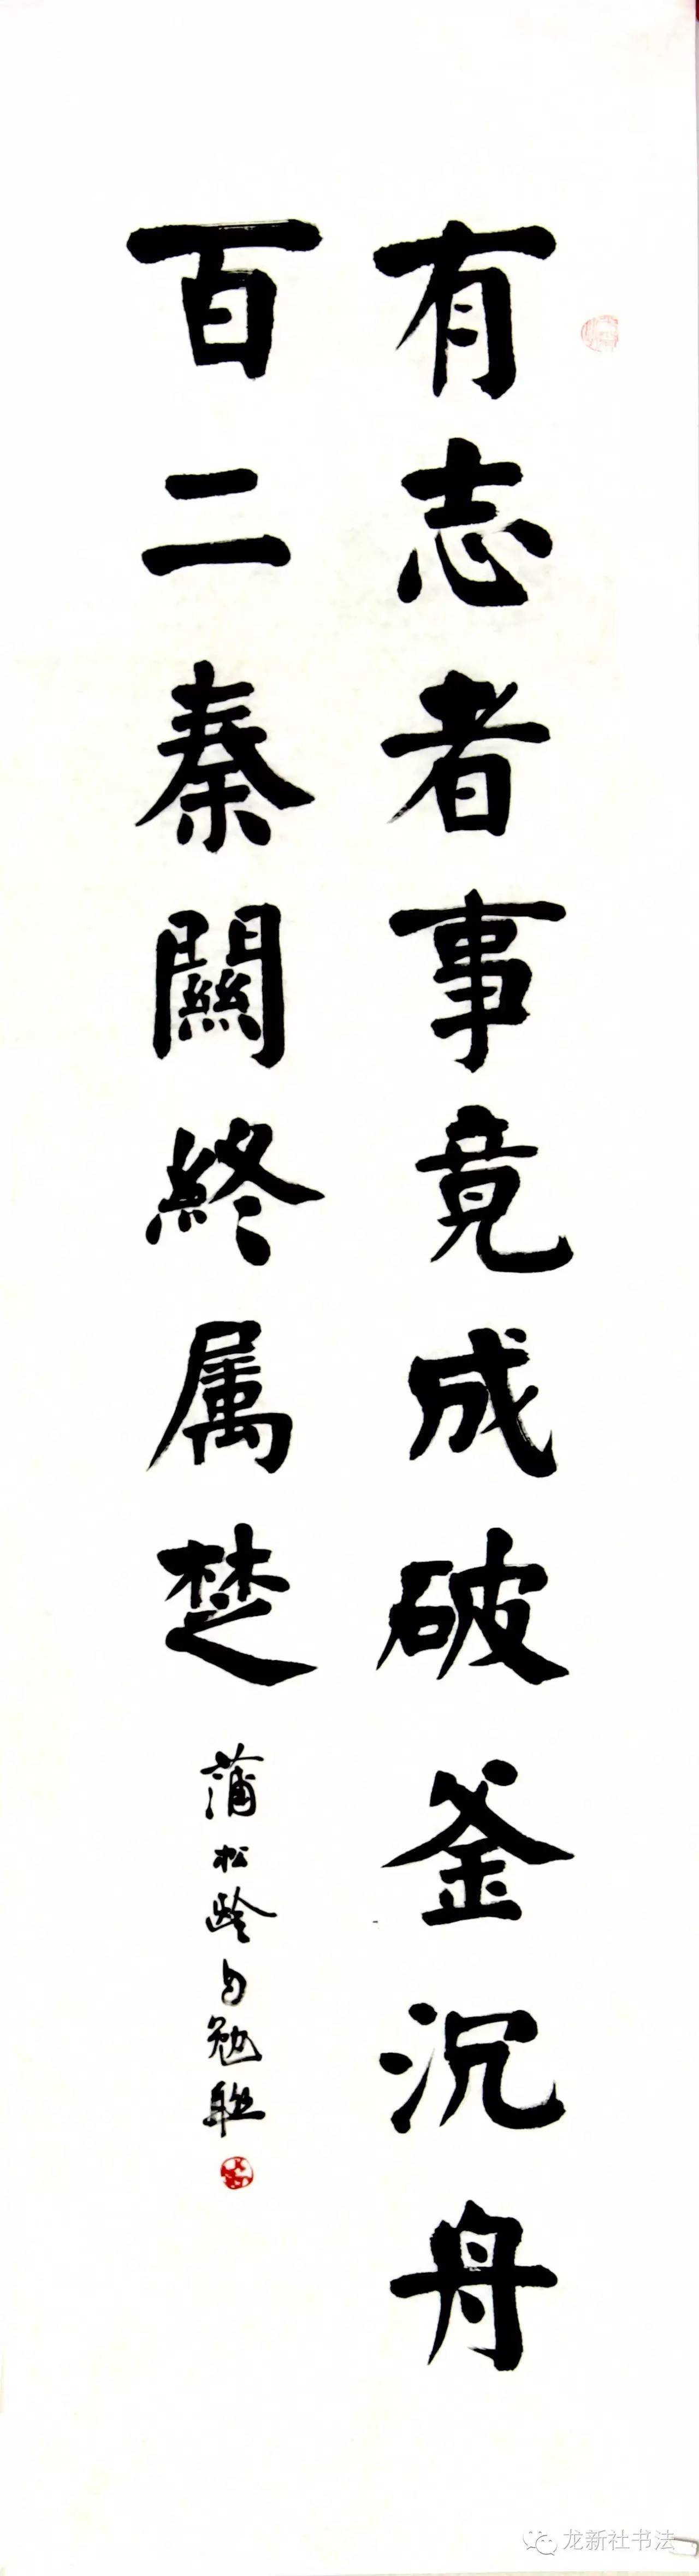 有志者事竟成破釜沉舟
百二秦關終属楚
蒲松龄自勉联
龙新社书法